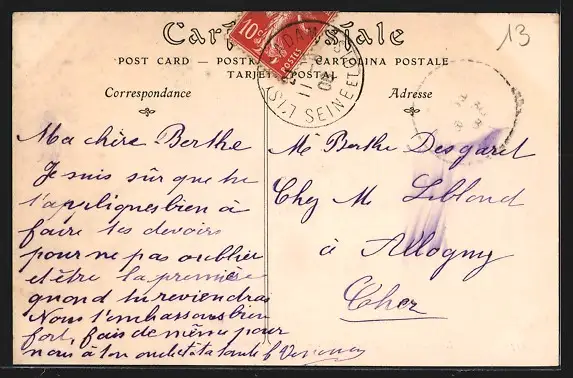 Carte Postale
13
POST CARD — POSTK — CARTOLINA POSTALE
TARJE POSTAL
10c
POSTES
L'ISLE ADAM
SEINE ET OISE
11
08
Correspondance
Adresse
Ma chère Berthe
Je suis sûr que tu
t'apliques bien à
faire tes devoirs
pour ne pas oublier
et être la première
quand tu reviendras
Nous t'embrassons bien
fort, fais de même pour
nous à ton oncle et ta tante
Me Berthe Desgaret
Chez M Leblond
à Allogny
Cher